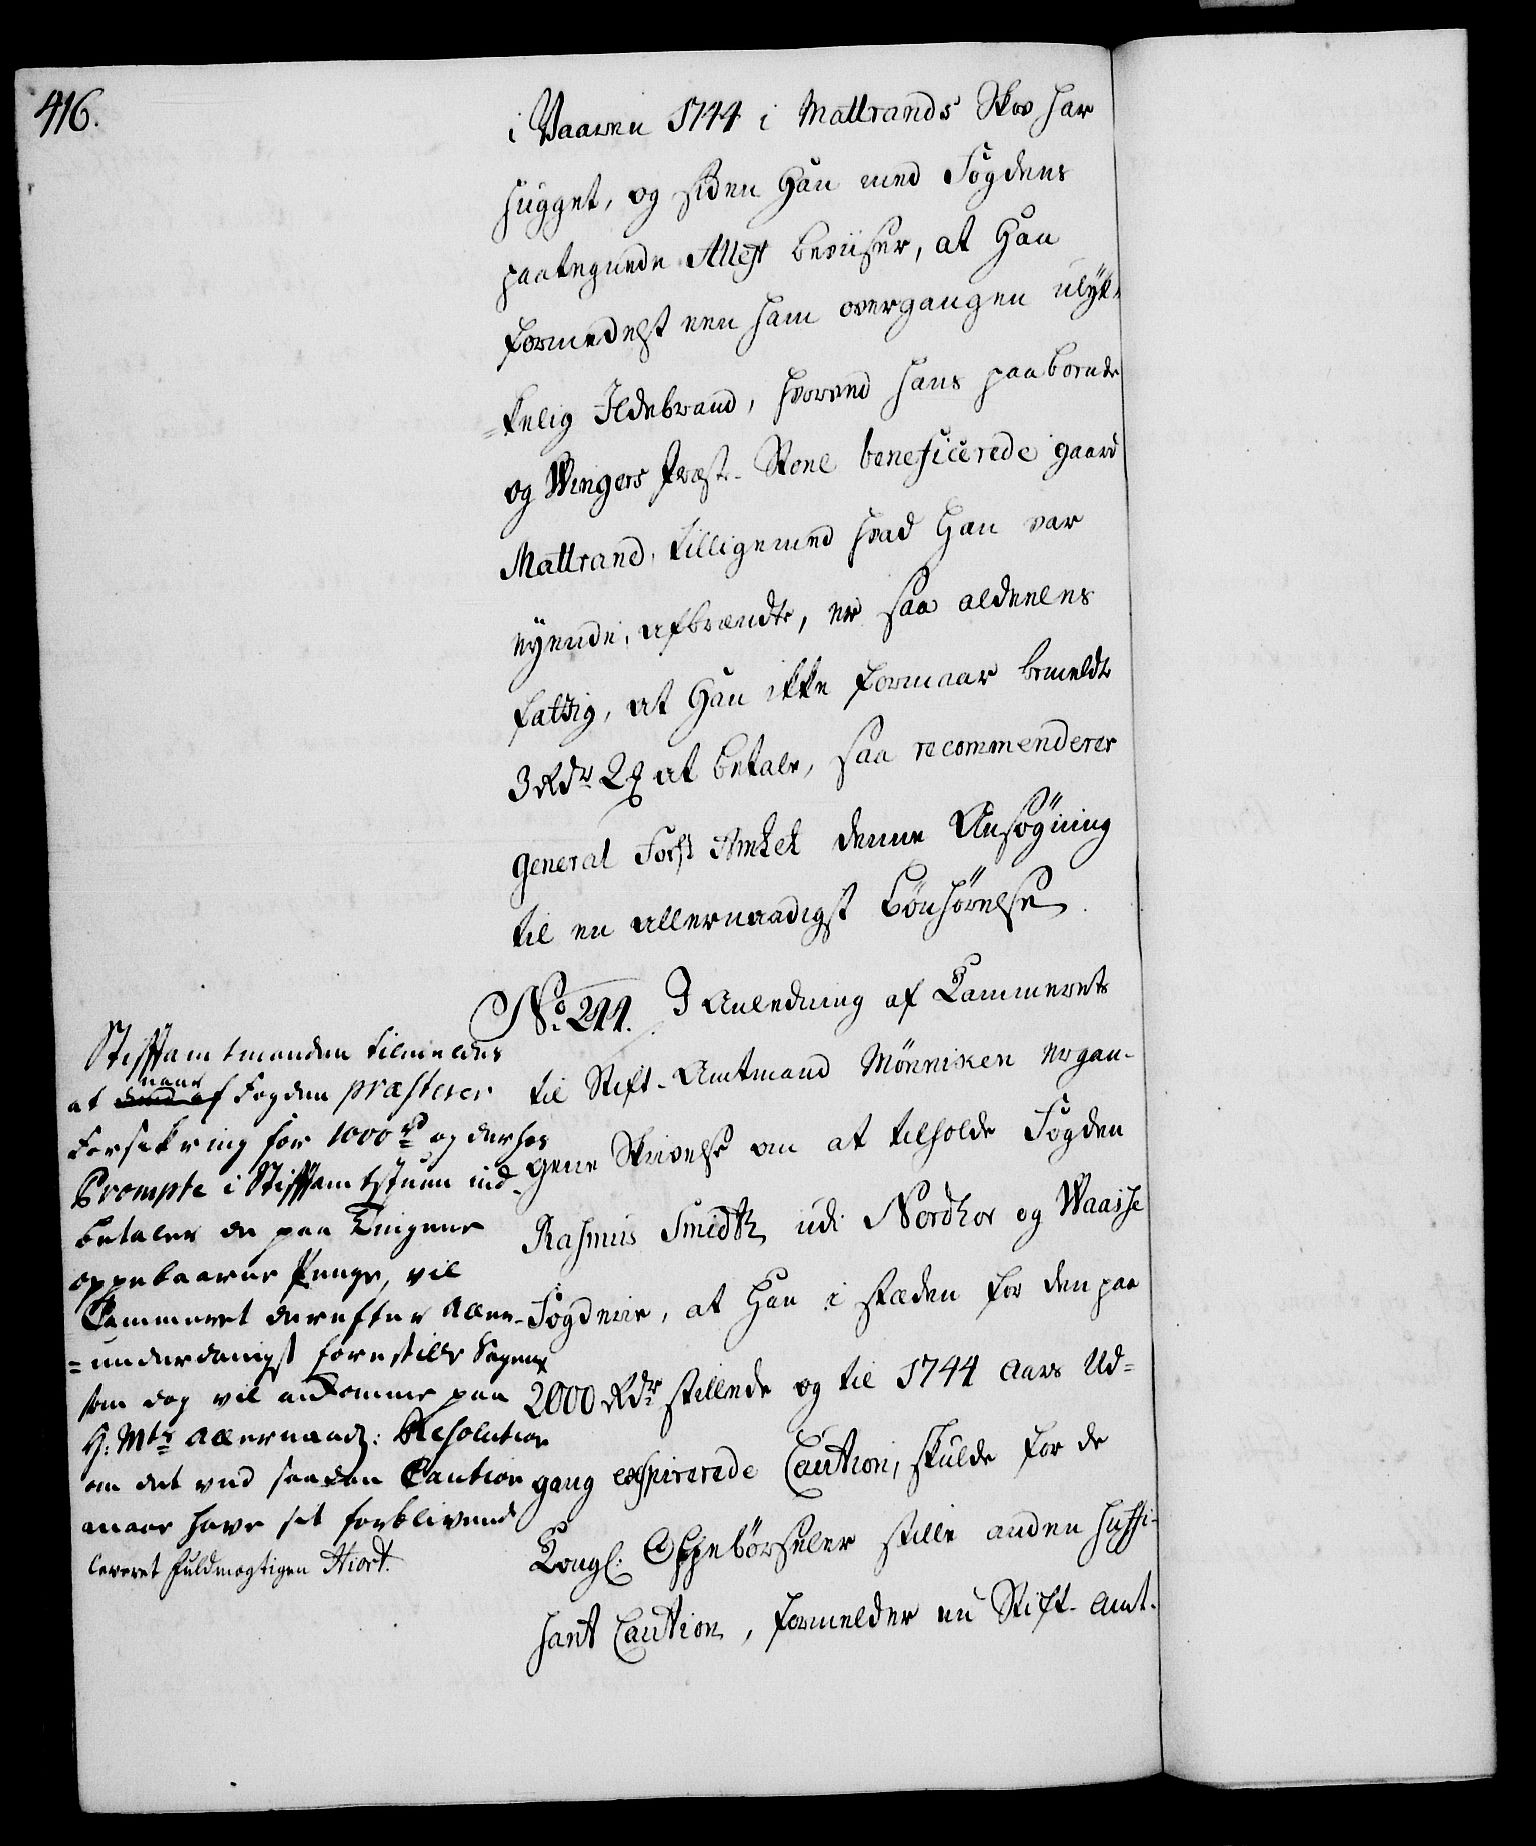 416.
i Vaaren 1744 i Mattrands Skov har
hugget, og siden Han med Fogdens
paategnede Attest beviiser, at Han
formedelst een ham overgangen ulyk-
kelig Ildebrand, hvorved hans paaboende
og Wingers Præste-Stoel beneficerede gaard
Mattrand, tilligemed hvad Han var
eyende, afbrændte, er saa aldeeles
fattig, at Han ikke formaar bemeldte
3 Rdr 2 at betale, saa recommenderer
General Forst Amtet denne Ansøgning
til en allernaadigst Bønhørelse.
No. 244. I Anledning af Cammerets
til Stift-Amtmand Mönniken ergan-
gene Skrivelse om at tilholde Fogden
Rasmus Smidth udi Nordhor og Waasse
Fogderie, at Han i stæden for den paa
2000 Rdr stillede og til 1744 Aars Ud-
gang exspirerede Caution, skulde for de
Kongl. Oppebørseler stille anden suffi-
sant Caution, formelder nu Stift-Amt-
Stiftamtmanden tilmeldes
at naar Fogden præsterer
Forsikring for 1000 rd og derhos
Prompte i Stiftamtstuen ind-
betaler de paa Tingene
oppebaarne Penge, vil
Cammeret derefter aller-
=underdanigst forestille Sagen,
som dog vil ankomme paa
H: Mts allernaad: Resolution
om det ved saadan Caution
maae have sit forblivende
leveret fuldmægtigen Hiort.